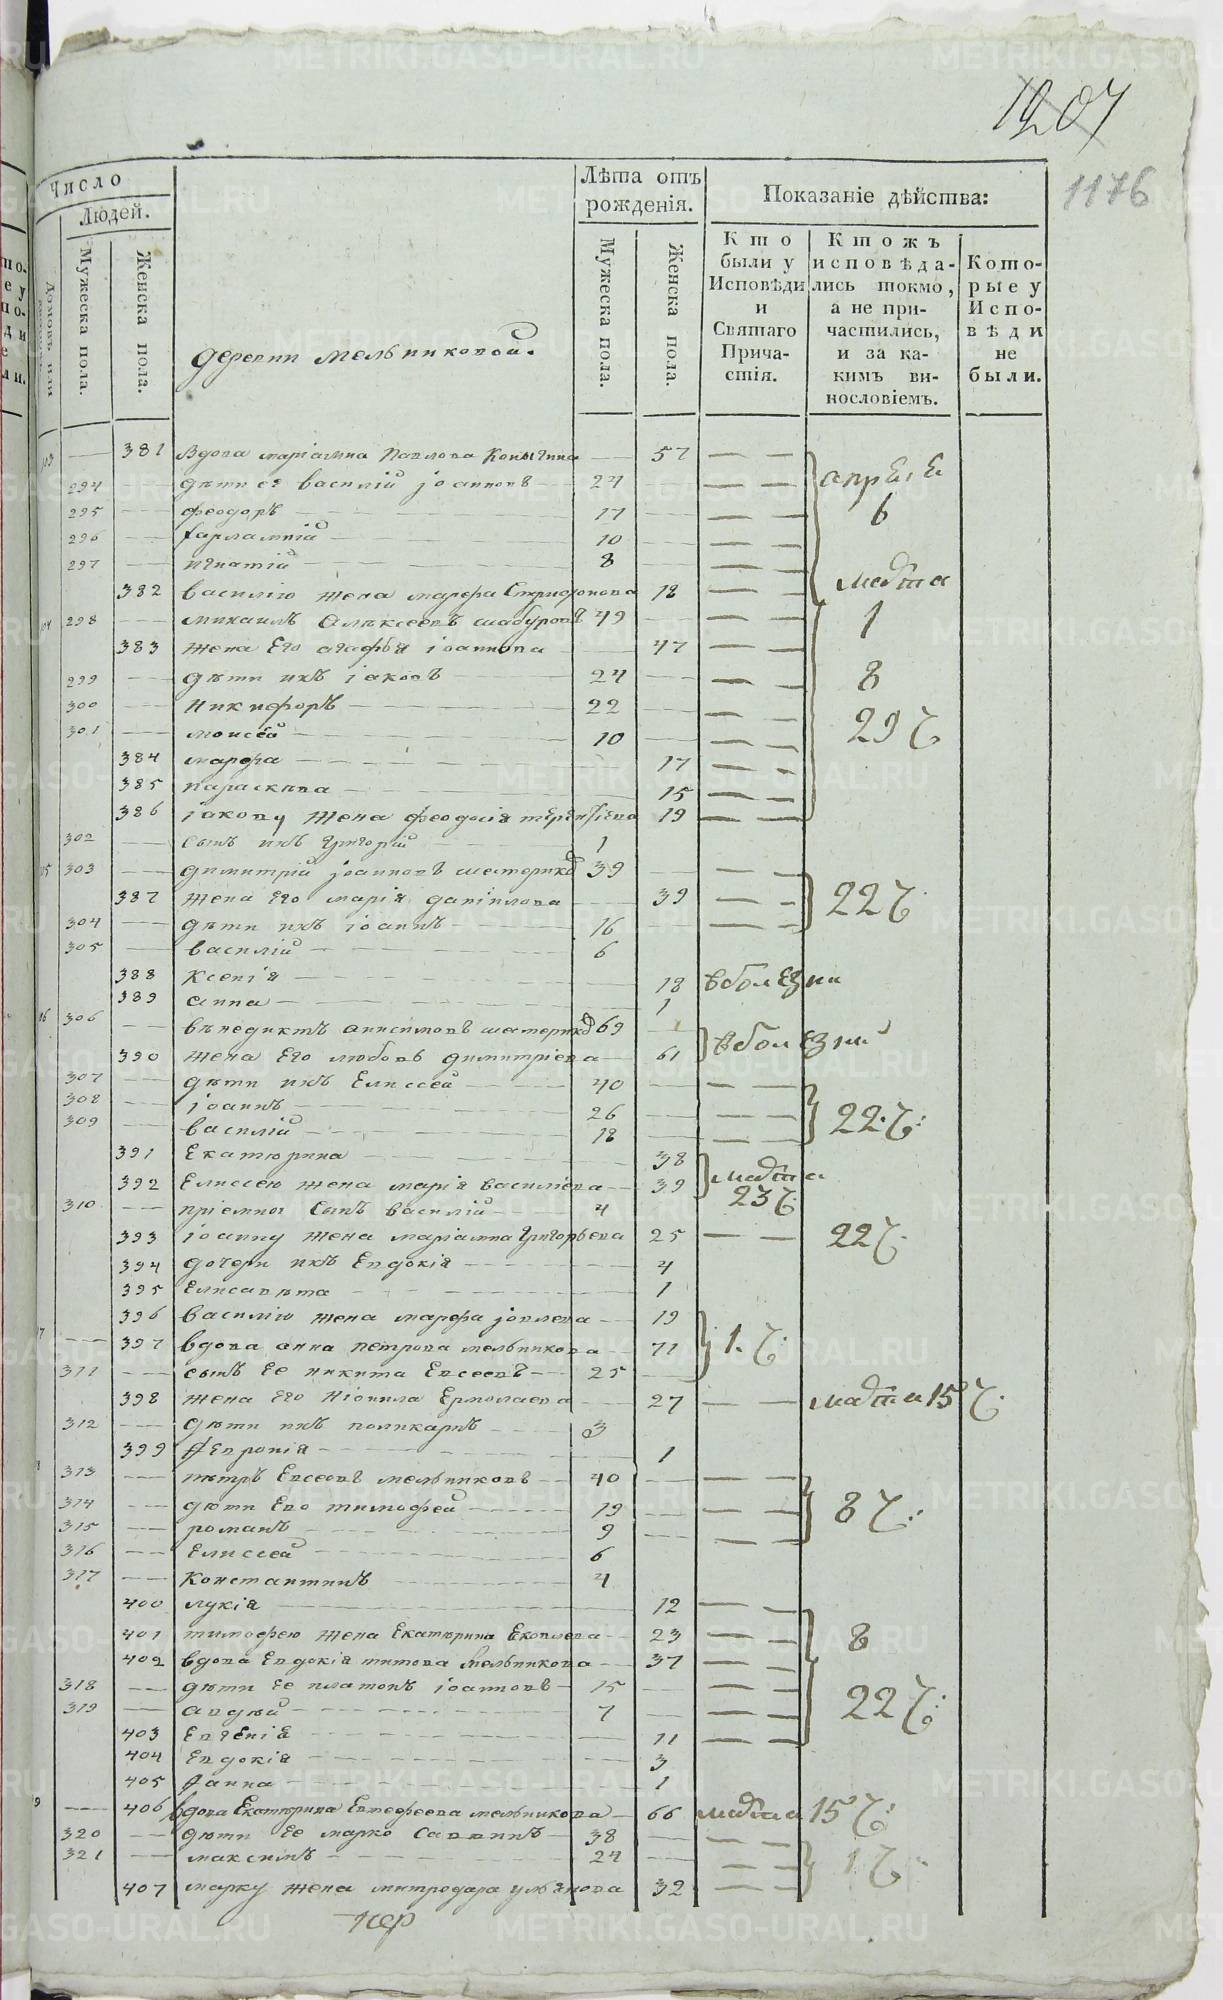 1207
1176
Число
Людей.
Лѣта отъ рожденія.
Показаніе дѣйства:
Домовъ или
Мужеска пола.
Женска пола.
Мужеска пола.
Женска пола.
Кто были у Исповѣди и Святаго Причастія.
Ктожъ исповѣдались токмо, а не причастились, и за какимъ винословіемъ.
Которые у Исповѣди не были.
деревни мельниковой.
103 — 381 Вдова маріамна Павлова Копытина — 57 — —
294 — дѣти ея василій іоанновъ — 24 — — апреля
295 — феодоръ — 17 — — 6
296 — харлампій — 10 — —
297 — игнатій — 8 — —
382 василію жена марфа Спиридонова 18 — — марта
298 — михаилъ Алексеевъ шабуровъ 49 — — 1
383 жена Его агафья іоаннова — 47 — —
299 — дѣти ихъ іаковъ — 24 — — 8
300 — никифоръ — 22 — — 29 ч
301 — моисей — 10 — —
384 марфа — 17 — —
385 параскева — 15 — —
386 іакову жена феодосія терентіева 19 — —
302 — сынъ ихъ григорій — 1
303 — димитрій іоанновъ 39 — —
387 жена Его марія даніилова — 39 — — 22 ч.
304 — дѣти ихъ іоаннъ — 16 — —
305 — василій — 6
388 ксенія — 18 в болезни
389 анна — 1
306 — венедиктъ анисимовъ 69 —
390 жена Его любовь димитріева — 61 в болезни
307 — дѣти ихъ Елиссей — 40 — —
308 — іоаннъ — 26 — — 22. ч:
309 — василій — 18 — —
391 Екатерина — 38 марта
392 Елиссею жена марія василіева — 39 23 ч
310 — пріемной сынъ василій — 4
393 іоанну жена маріамна григорьева 25 — — 22 ч.
394 дочери ихъ Евдокія — 4
395 Елисавета — 1
396 василію жена марфа іовлева — 19
397 вдова анна петрова мельникова — 71 1. ч.
311 — сынъ Ее никита Евсеевъ — 25 —
398 жена Его Неонила Ермолаева — 27 — — марта 15 ч.
312 — дѣти ихъ поликарпъ — 3
399 Февронія — 1
313 — петръ Евсеевъ мельниковъ — 40 — —
314 — дѣти Его тимофей — 19 — — 8 ч.:
315 — романъ — 9 — —
316 — Елиссей — 6
317 — константинъ — 4
400 лукія — 12 — —
401 тимофею жена Екатерина — 23 — — 8
402 вдова Евдокія титова мельникова — 37 — —
318 — дѣти Ее платонъ іоанновъ — 15 — — 22 ч:
319 — авдѣй — 7 — —
403 Евгенія — 11 — —
404 Евдокія — 3
405 — 1
406 вдова Екатерина мельникова — 66 марта 15 ч:
320 — дѣти Ее марко Саввинъ — 38 — —
321 — максимъ — 24 — — 1 ч:
407 марку жена митродора ульянова 32 — —